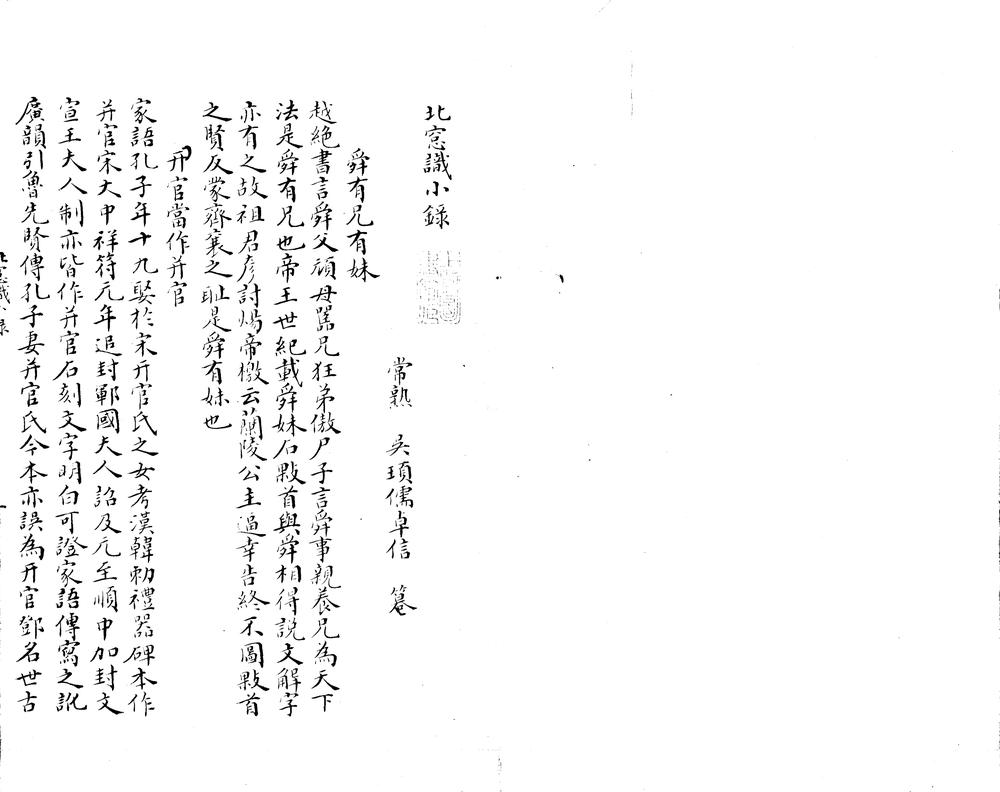 北窓識小錄
常熟 吳頊儒卓信 篹
舜有兄有妹
越絶書言舜父頑母嚚兄狂弟傲尸子言舜事親養兄為天下
法是舜有兄也帝王世紀載舜妹名敤首與舜相得説文解字
亦有之故祖君彦討煬帝檄云蘭陵公主逼幸告終不圖敤首
之賢反蒙齊襄之耻是舜有妹也
幵官當作并官
家語孔子年十九娶於宋幵官氏之女考漢韓勅禮器碑本作
并官宋大中祥符元年追封鄆國夫人詔及元至順中加封文
宣王夫人制亦皆作并官石刻文字明白可證家語傳寫之訛
廣韻引魯先賢傳孔子妻并官氏今本亦誤為幵官鄧名世古
北窓識小錄
一